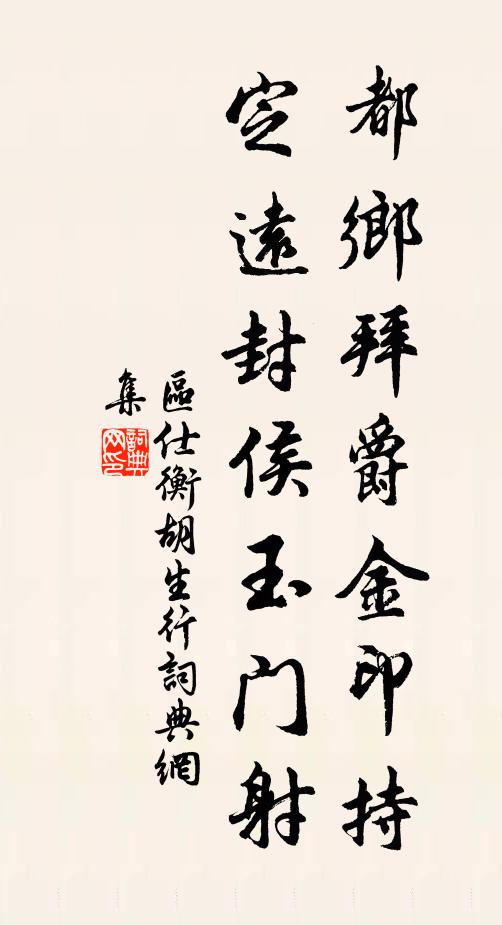 都鄉拜爵金印持
定遠封侯玉门射
區仕衡胡生行詞典網
集
詞典
网印